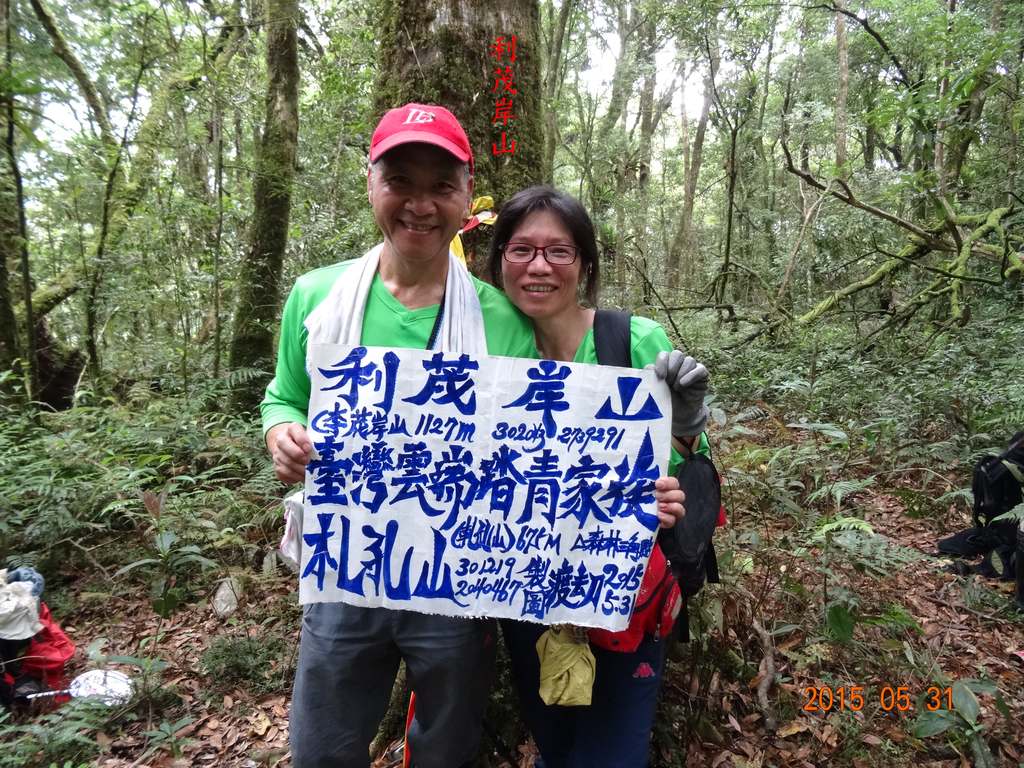 利茂岸山
利茂岸山
(李茂岸山 1127m 302013 2739291
臺灣雲端踏青家族
札孔山 (乳孔山) 675M △森林三角點
301219
2040467
製圖 渡劫 2015
5.31
2015 05 31